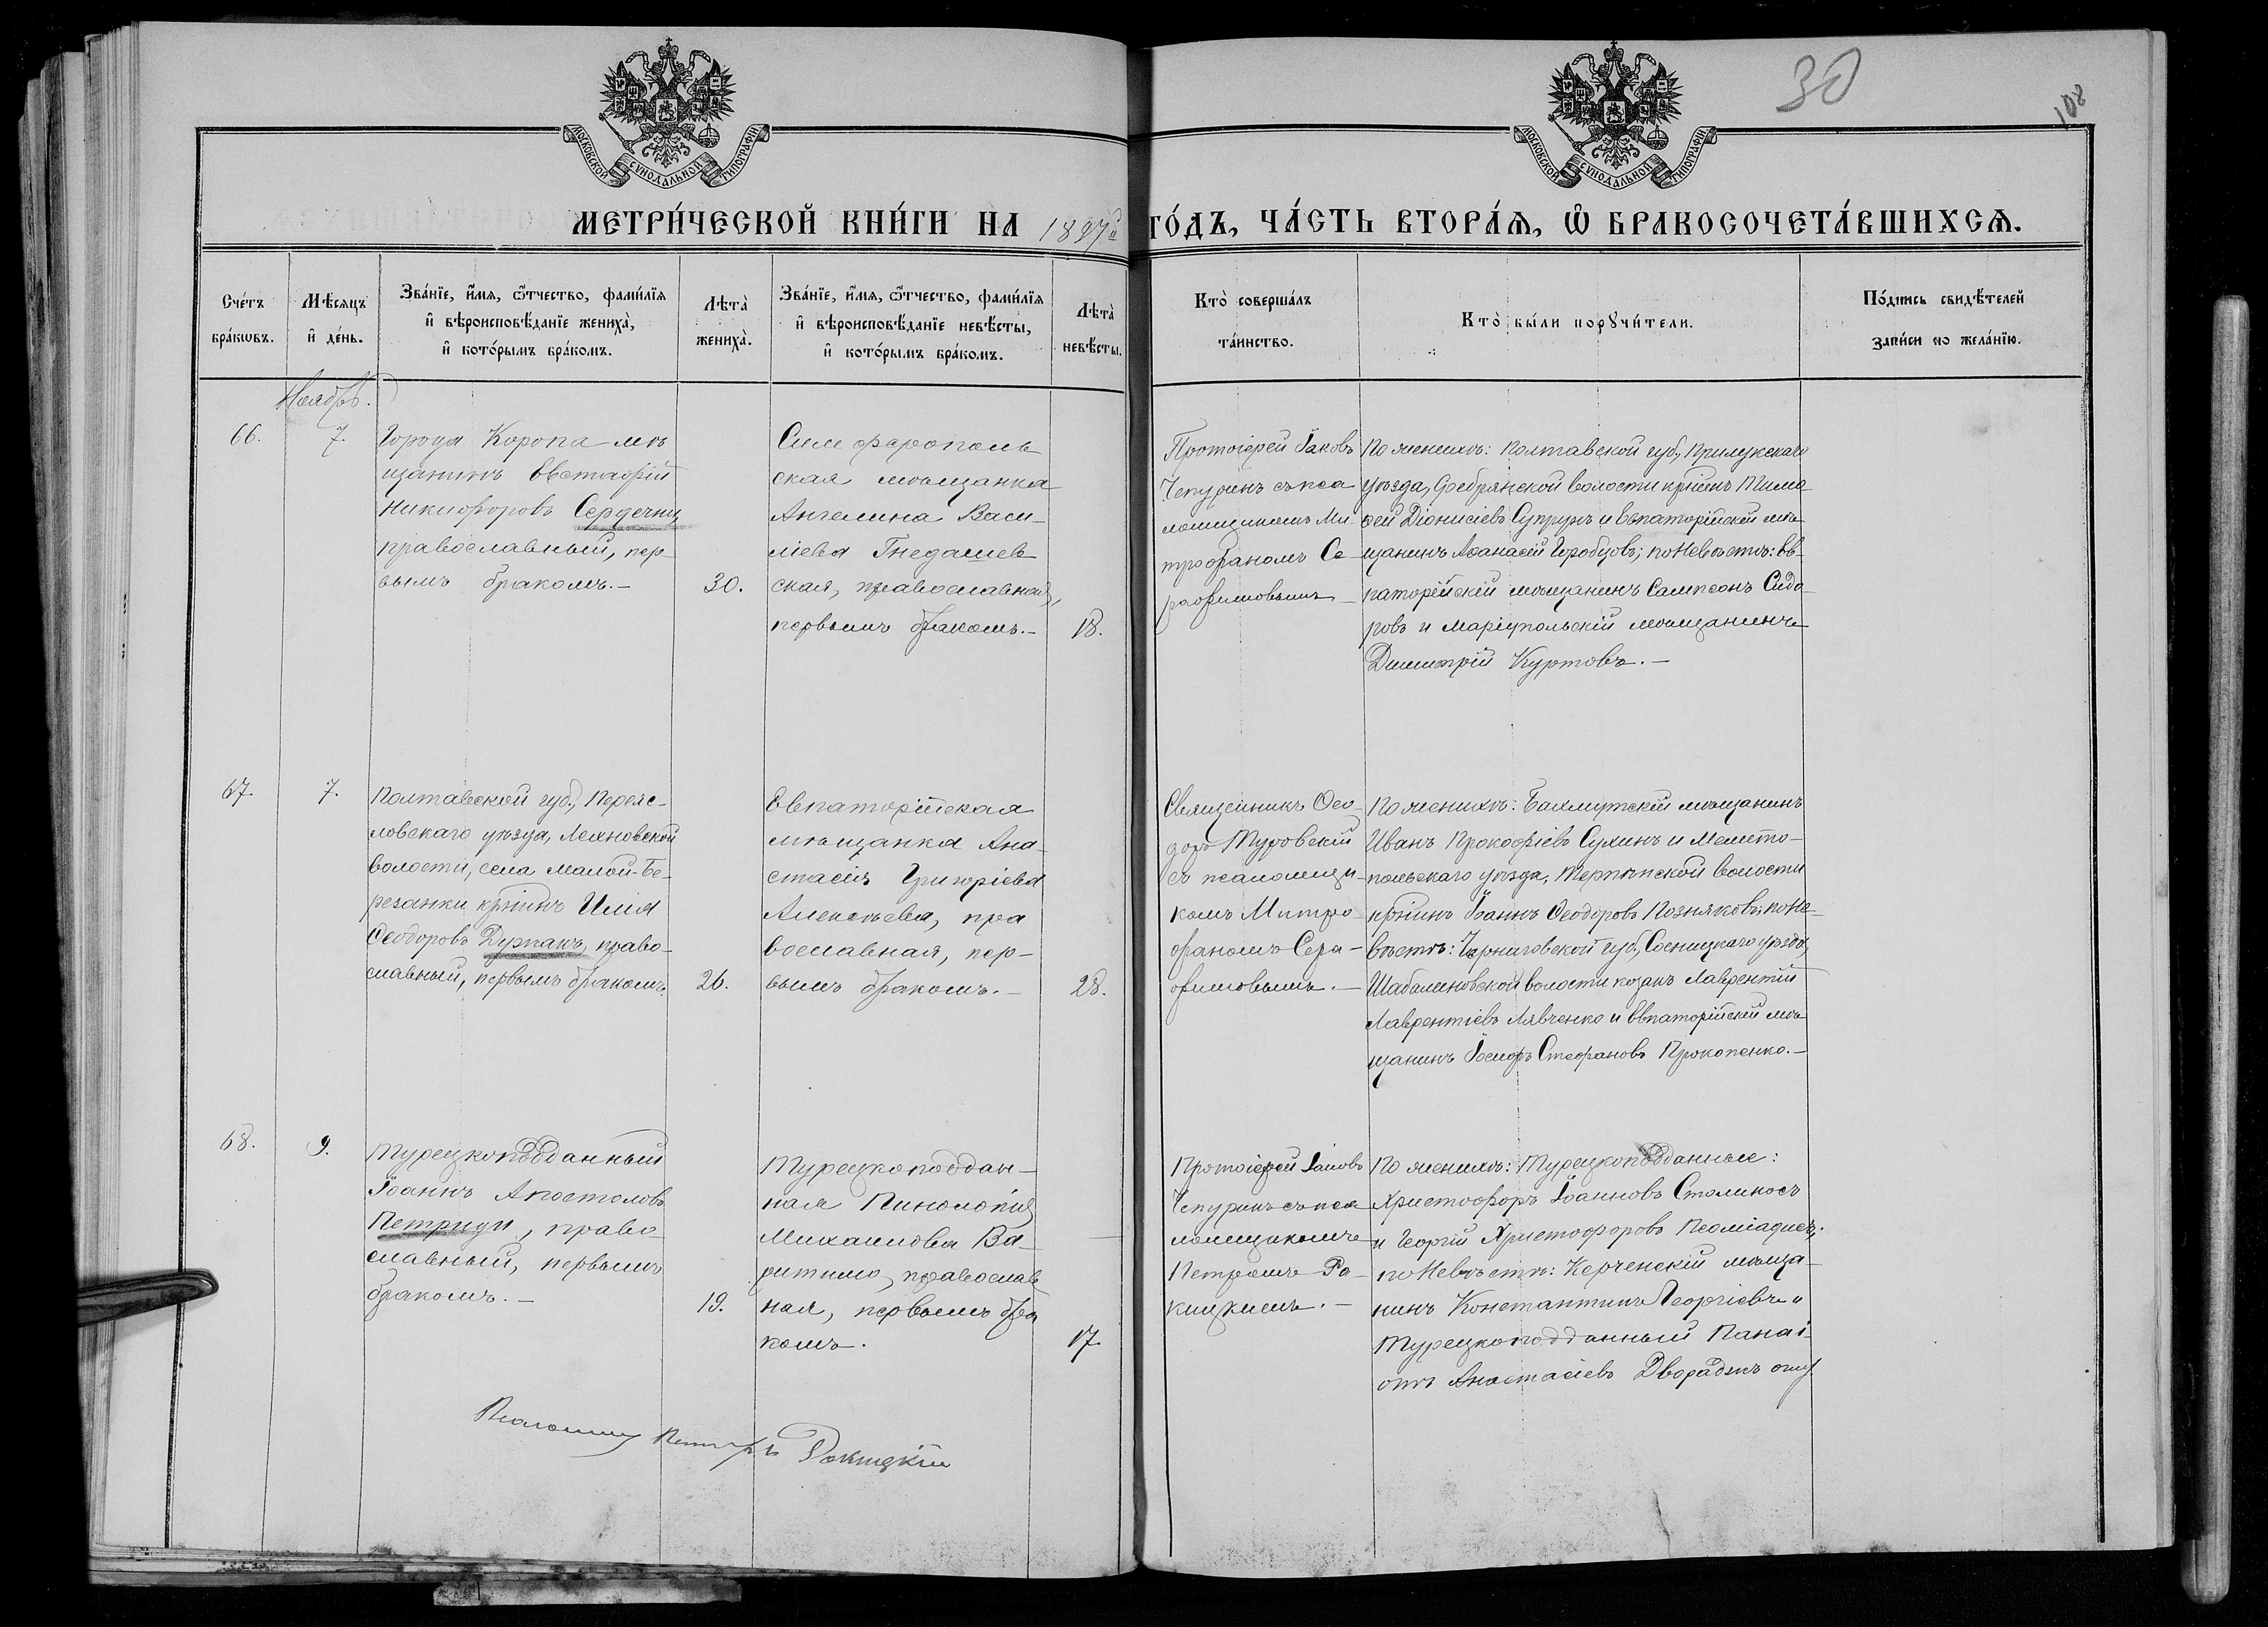 30
108
МОСКОВСКОЙ СѴНОДАЛЬНОЙ ТИПОГРАФІИ
МОСКОВСКОЙ СѴНОДАЛЬНОЙ ТИПОГРАФІИ
МЕТРИ́ЧЕСКОЙ КНИ́ГИ НА 1897й ГО́ДЪ, ЧА́СТЬ ВТОРА́Ѧ, Ѡ҆ БРАКОСОЧЕТА́ВШИХСѦ.
Сче́тъ
бра́кѡвъ.
Мѣ́сяцъ
и҆ де́нь.
Зва́нїе, и҆́мя, ѻ҆́тчество, фами́лїя
и҆ вѣроисповѣ́данїе жениха̀,
и҆ кото́рымъ бра́комъ.
Лѣта̀
жениха̀.
Зва́нїе, и҆́мя, ѻ҆́тчество, фами́лїя
и҆ вѣроисповѣ́данїе невѣ́сты,
и҆ кото́рымъ бра́комъ.
Лѣта̀
невѣ́сты.
Кто̀ соверша́лъ
та́инство.
Кто̀ бы́ли порꙋчи́тели.
По́дпись свидѣ́телей
за́писи по жела́нїю.
Ноябрь.
66.
7.
Города Коропа мѣ
щанинъ Евстафій
Никифоровъ Сердечны
православный, пер
вымъ бракомъ.-
30.
Симферополь
ская мѣщанка
Ангелина Васи-
ліева Гнедашев
ская, православная,
первымъ бракомъ.-
18.
Протоіерей Іаковъ
Чепуринъ съ пса
ломщикомъ Ми
трофаномъ Се
рафимовымъ
По женихѣ: Полтавской губ, Прилукскаго
уѣзда, Сребрянской волости кр͠інъ Тимо
ѳей Діонисіевъ Супрунъ и Евпаторійскій мѣ
щанинъ Аѳанасій Горобцовъ; по Невѣстѣ: Ев-
паторійскій мѣщанинъ Сампсонъ Сидо
ровъ и Маріупольскій мѣщанинъ
Димитрій Куртовъ.-
67.
7.
Полтавской губ., Переяс-
ловскаго уѣзда, Лехновской
волости, села Малой-Бе-
резанки кр͠інъ Илія
Ѳеодоровъ Дурпакъ, право-
славный, первымъ бракомъ.
26.
Евпаторійская
мѣщанка Ана-
стасія Григоріева
Алексѣева, пра
вославная, пер-
вымъ бракомъ.-
28.
Священникъ Ѳео-
доръ Туровскій
съ псаломщи-
комъ Митро-
фаномъ Сера-
фимовымъ.-
По женихѣ: Бахмутскій мѣщанинъ
Иванъ Прокофіевъ Сухинъ и Мелито-
польскаго уѣзда, Терпѣнской волости
кр͠інъ Іоаннъ Ѳеодоровъ Позняковъ; по Не-
вѣстѣ: Черниговской губ., Сосницкаго уѣзда,
Шабалиновской волости козакъ Лаврентій
Лаврентіевъ Лявченко и Евпаторійскій мѣ
щанинъ Іосифъ Стефановъ Прокопенко.-
68.
9.
Турецкоподданный
Іоаннъ Апостоловъ
Петриди, право
славный, первымъ
бракомъ.-
19.
Турецкоподдан-
ная Пинолопія
Михаилова Ва-
ритимо, православ
ная, первымъ бра
комъ.
17.
Протоіерей Іаковъ
Чепуринъ съ пса
ломщикомъ
Петромъ Ра-
кицкимъ.-
По женихѣ: Турецкоподданные:
Христофоръ Іоанновъ Столикосъ
и Георгій Христофоровъ Псоміадисъ;
по Невѣстѣ: Керченскій мѣща-
нинъ Константинъ Георгіевъ и
Турецкоподданный Панаі-
отъ Анастасіевъ
Псаломщ Петръ Ракицкій